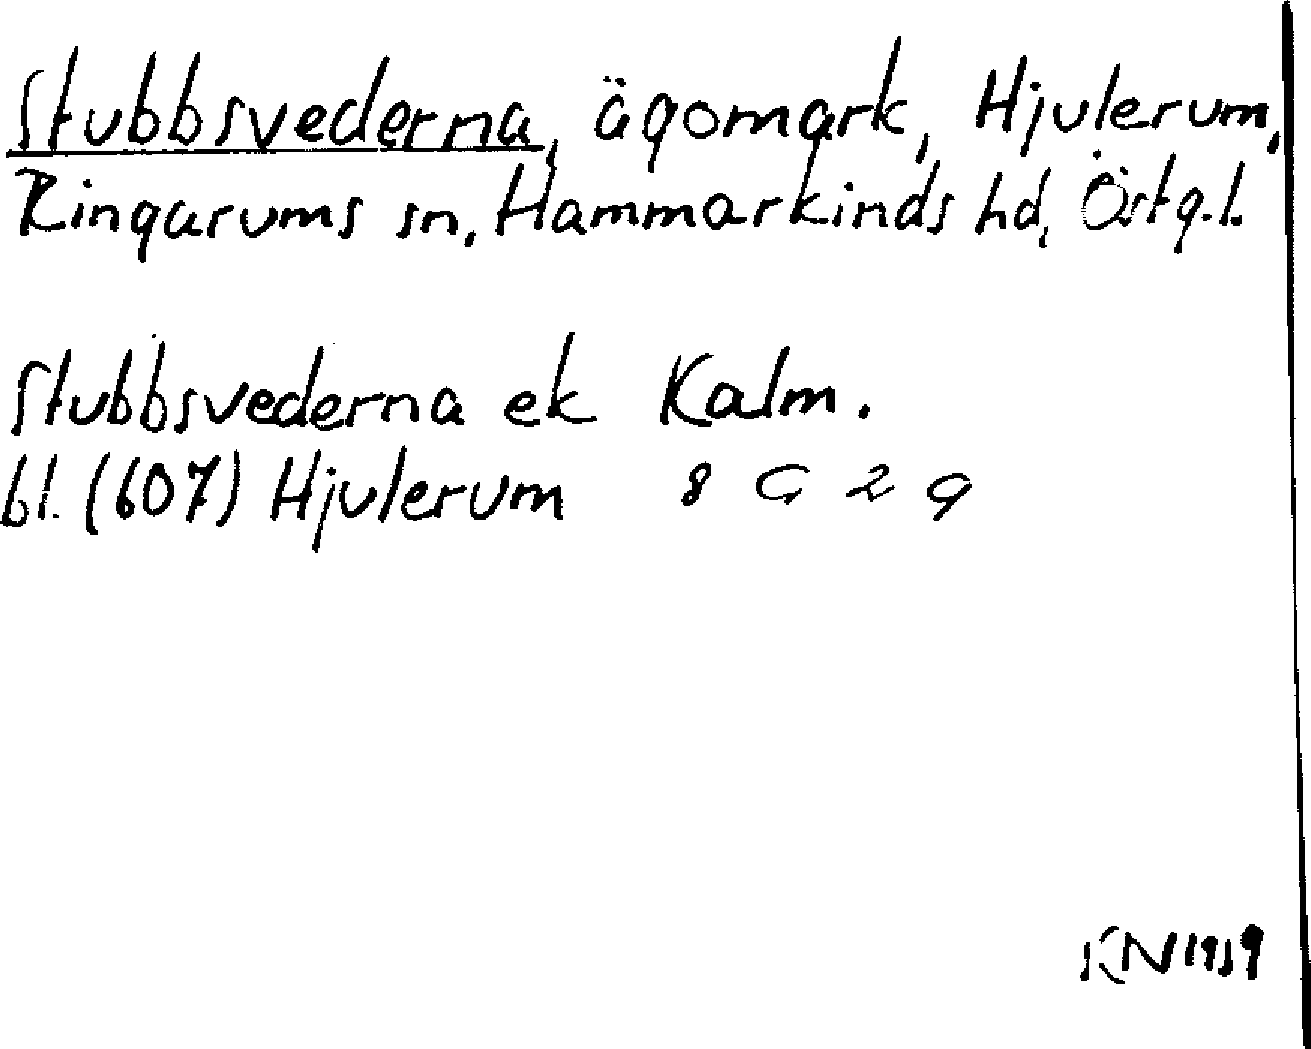 Stubbsvederna, ägomark, Hjulerum,
Ringarums sn, Hammarkinds hd, Östg.l.
Stubbsvederna ek Kalm.
bl. (607) Hjulerum 8 G 2 g